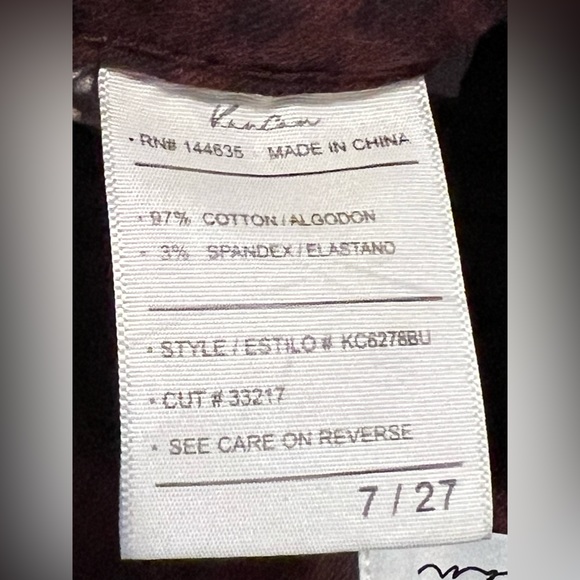 KanCan
• RN# 144635 MADE IN CHINA
• 97% COTTON/ALGODON
• 3% SPANDEX/ELASTANO
• STYLE/ESTILO# KC6278BU
• CUT # 33217
• SEE CARE ON REVERSE
7 / 27